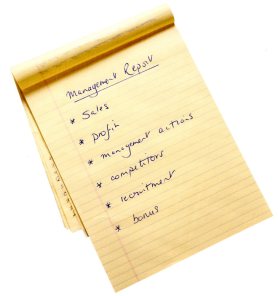 Management Report
* Sales
* profit
* management actions
* competitors
* recruitment
* bonus